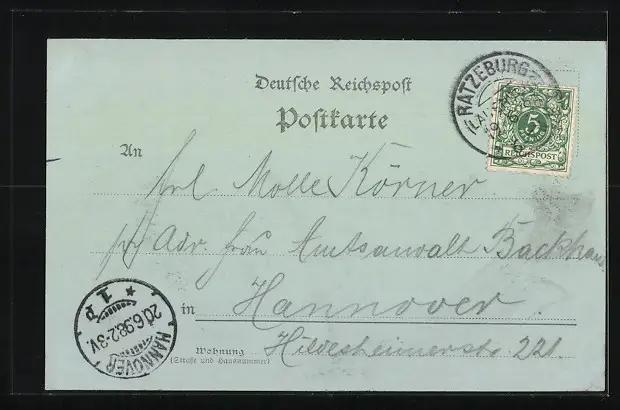 Deutsche Reichspost
Postkarte
RATZEBURG
5
REICHSPOST
An
Frl. Molle Körner.
p. Adr. Frau Amtsanwalt Backhaus
in Hannover.
Wohnung
(Straße und Hausnummer)
Hildesheimerstr. 221
HANNOVER
20.6.98.2-3V
* 1 d